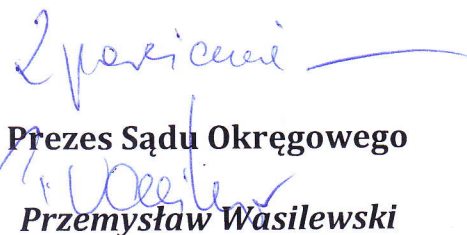 Z poważaniem
Prezes Sądu Okręgowego
Przemysław Wasilewski